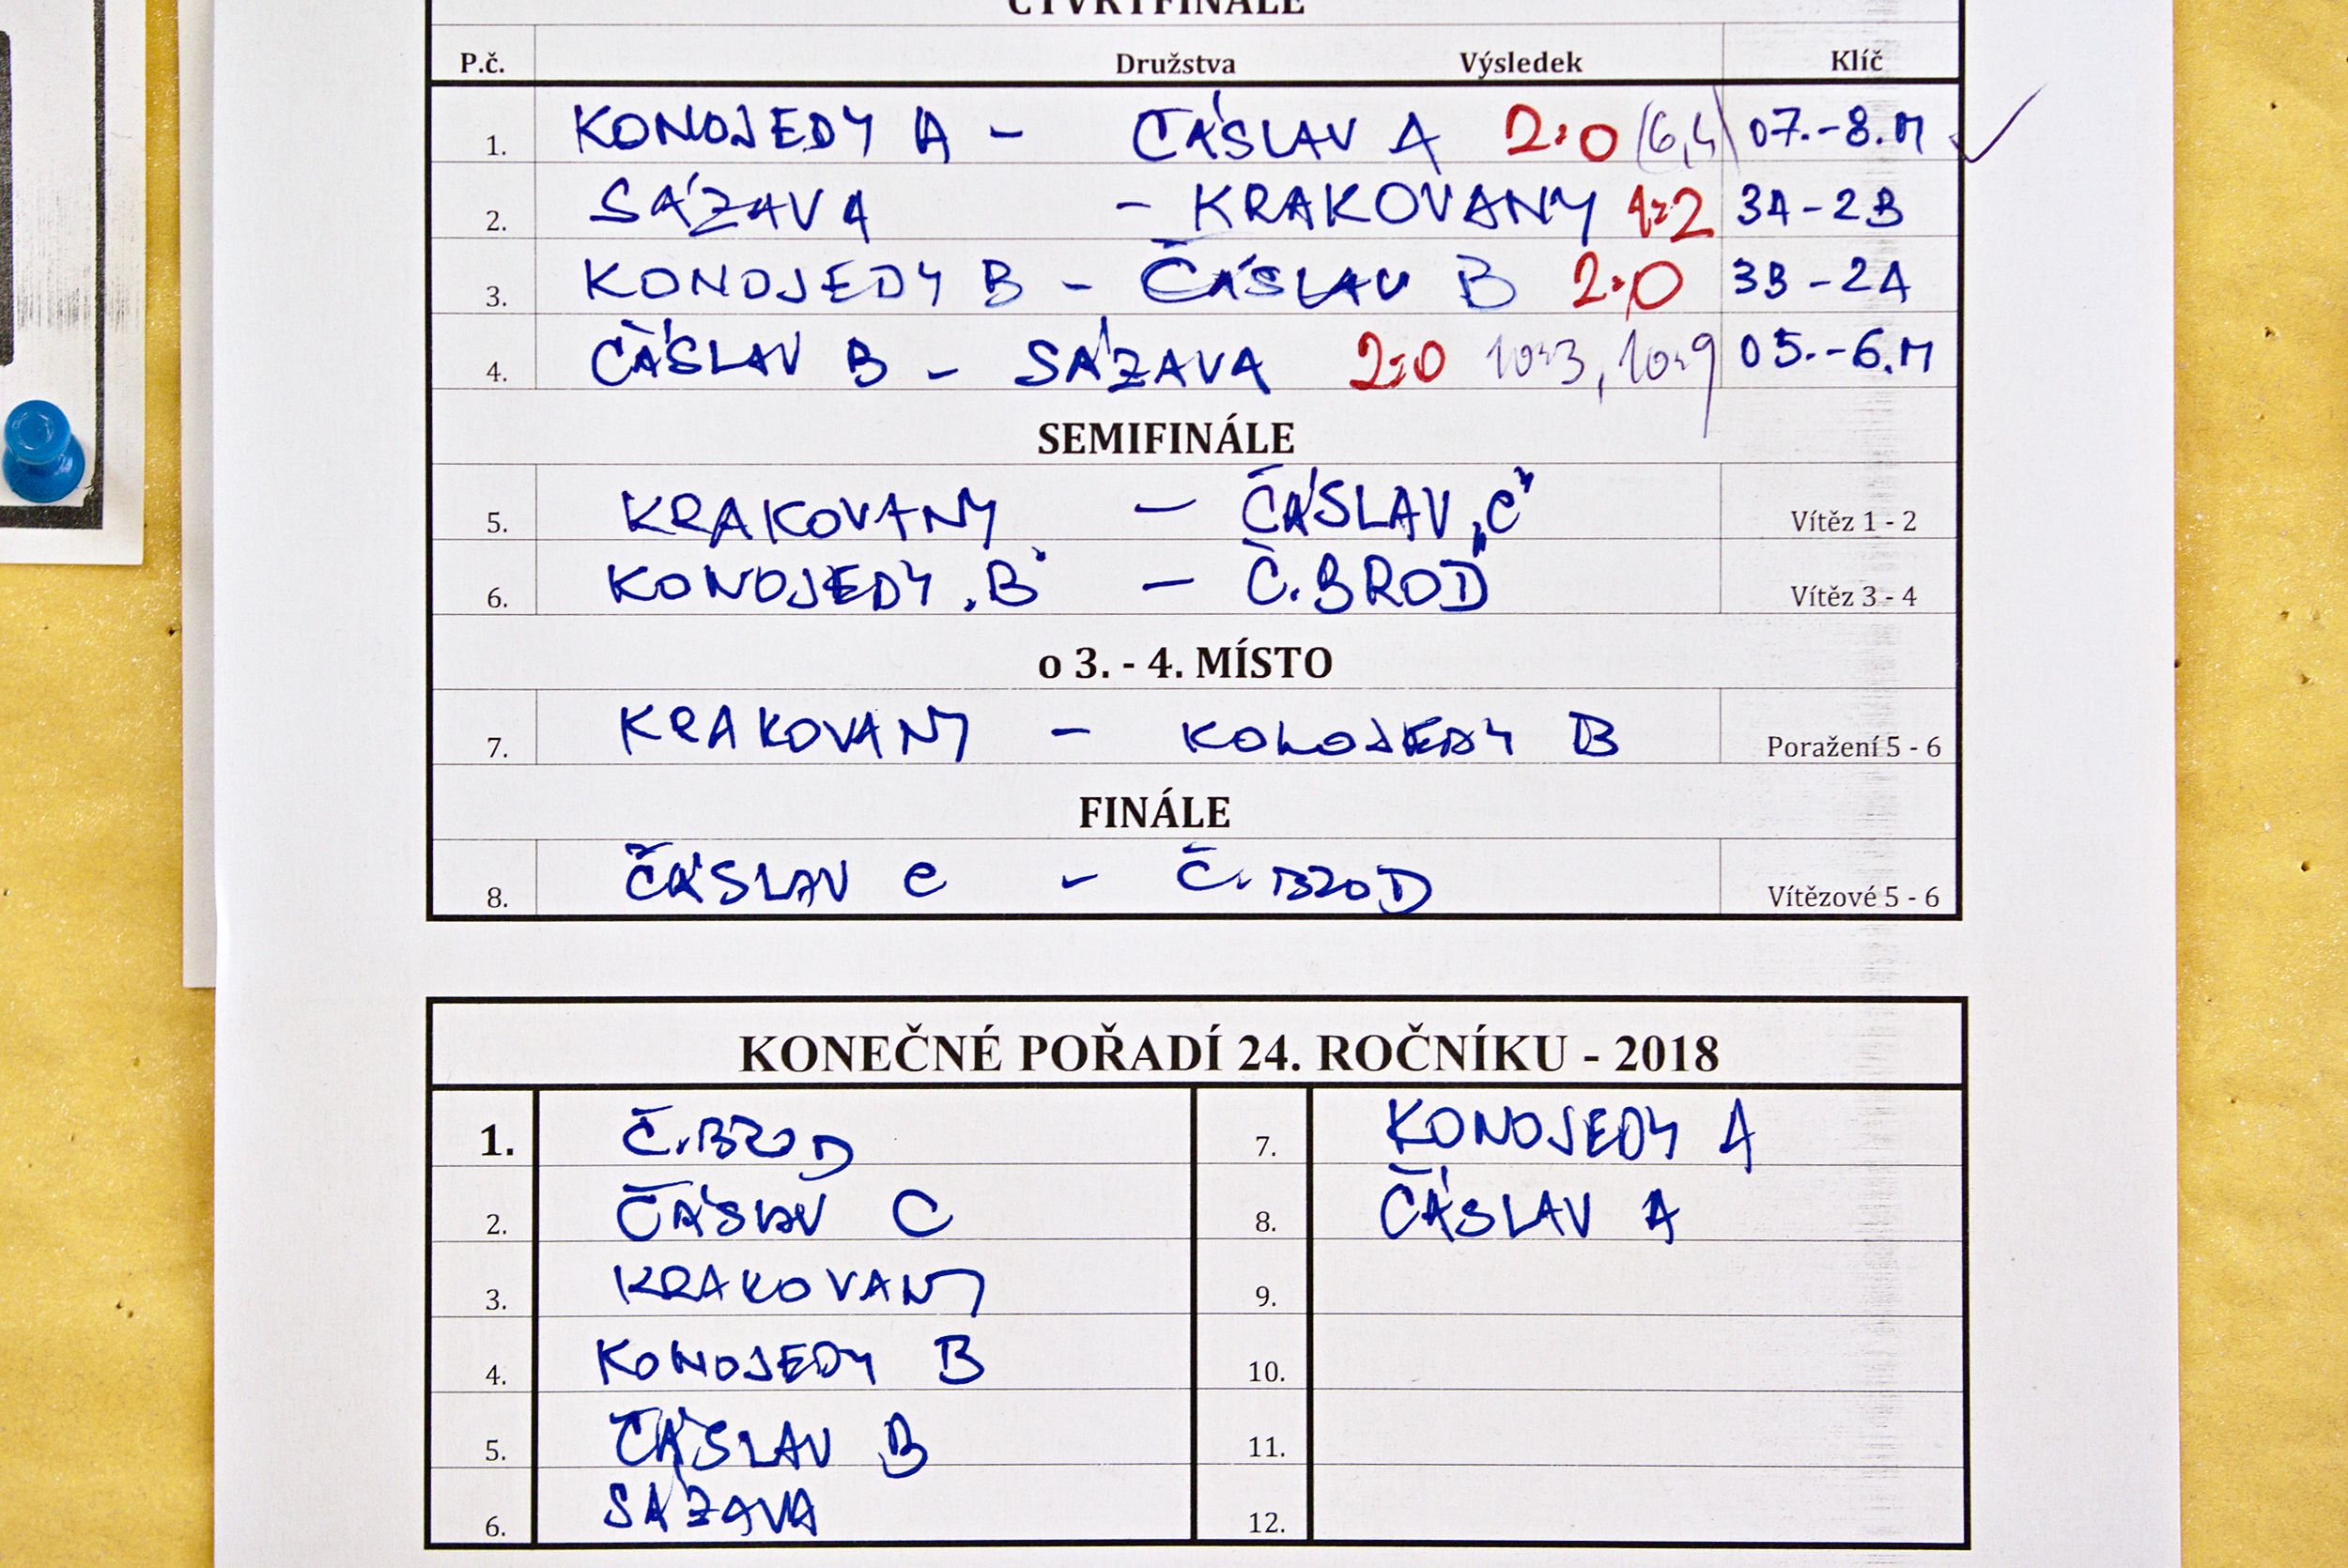 ČTVRTFINÁLE
P.č. Družstva Výsledek Klíč
1. KONOJEDY A - ČÁSLAV A 2:0 (6,4) 07.-8.M
2. SÁZAVA - KRAKOVANY 1:2 3A-2B
3. KONOJEDY B - ČÁSLAV B 2:0 3B-2A
4. ČÁSLAV B - SÁZAVA 2:0 10:3, 10:9 05.-6.M
SEMIFINÁLE
5. KRAKOVANY - ČÁSLAV „C" Vítěz 1 - 2
6. KONOJEDY „B" - Č.BROD Vítěz 3 - 4
o 3. - 4. MÍSTO
7. KRAKOVANY - KONOJEDY B Poražení 5 - 6
FINÁLE
8. ČÁSLAV C - Č.BROD Vítězové 5 - 6
KONEČNÉ POŘADÍ 24. ROČNÍKU - 2018
1. Č.BROD 7. KONOJEDY A
2. ČÁSLAV C 8. ČÁSLAV A
3. KRAKOVANY 9.
4. KONOJEDY B 10.
5. ČÁSLAV B 11.
6. SÁZAVA 12.